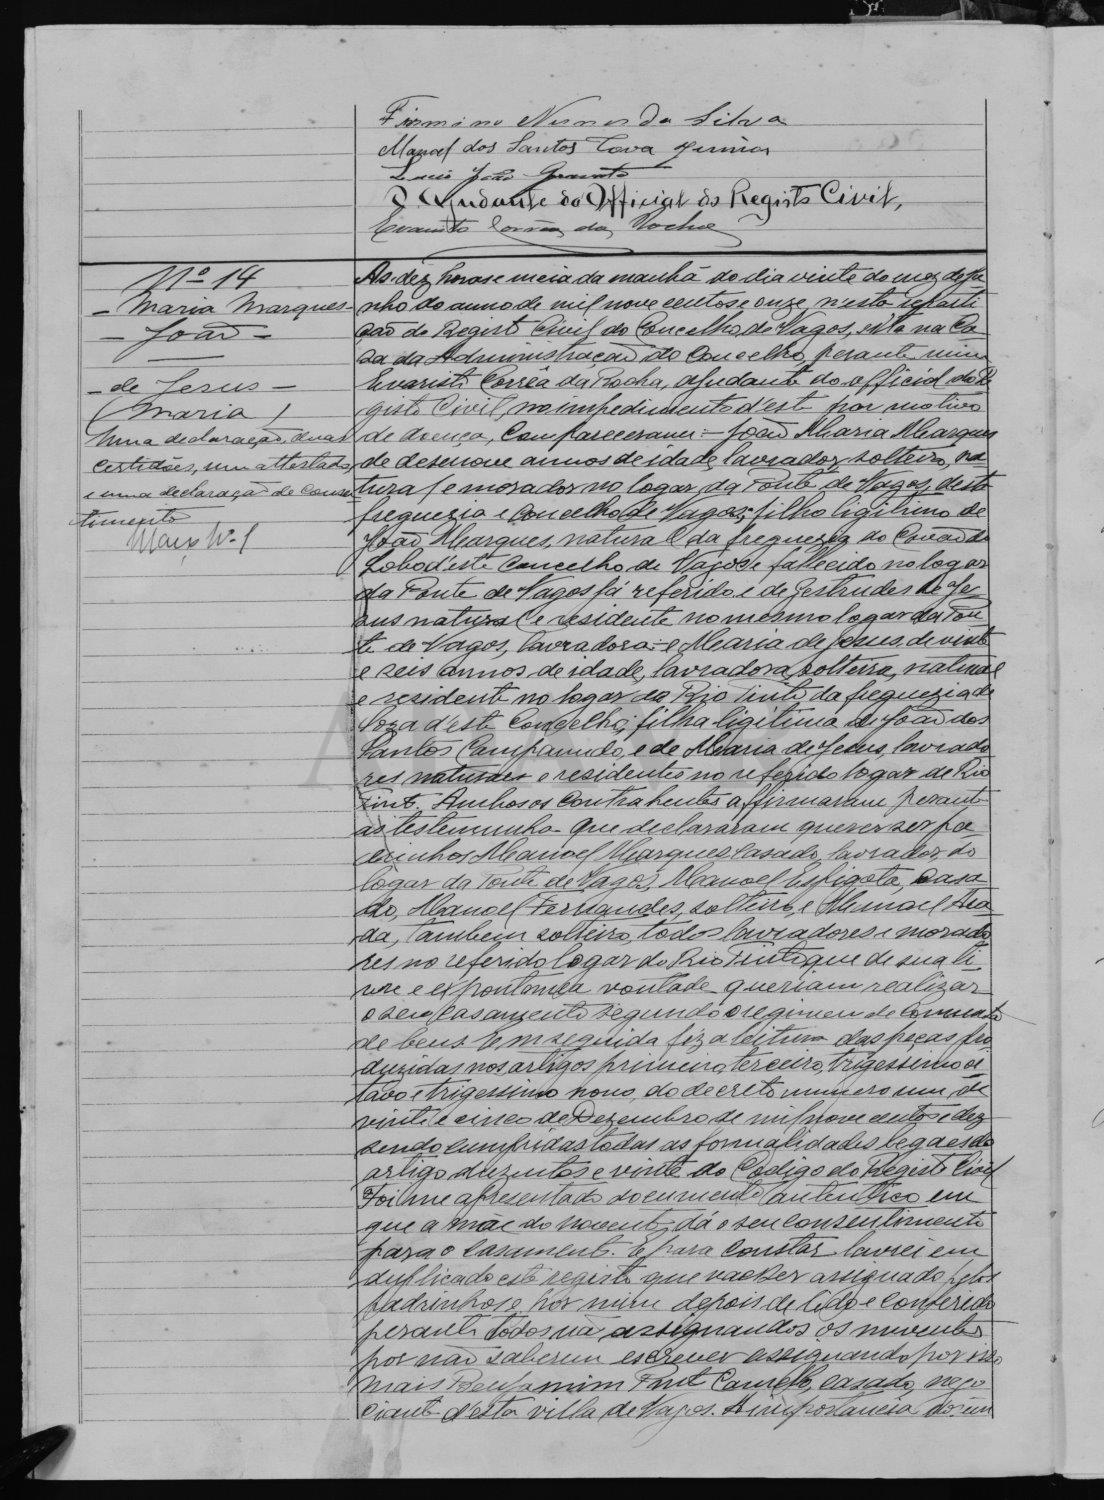 Firmino Nunes da Silva
Manoel dos Santos Cova Junior
Luis João Granate
O Ajudante do Official do Registo Civil,
Evaristo Corrêa da Rocha
Nº 14
- Maria Marques -
- João -
- de Jesus -
(Maria)
Uma declaração, duas
certidões, um attestado,
e uma declaração de consen
timento
Maço Nº 1
As dez horas e meia da manhã do dia vinte do mez de Ju
nho do anno de mil nove centos e onze, n'esta reparti
ção do Registo Civil do Concelho de Vagos, sita na Ca
za da Administração do Concelho, perante mim
Evaristo Corrêa da Rocha, ajudante do official do Re
gisto Civil, no impedimento d'este por motivo
de doença, Compareceram: - João Maria Marques
de desenove annos de idade, lavrador, solteiro, na
tural e morador no logar da Ponte de Vagos, desta
freguezia e concelho de Vagos; filho ligitimo de
João Marques, natural da freguezia do Covão do
Lobo d'este Concelho de Vagos e fallecido no logar
da Ponte de Vagos já referido e de Gestrudes de Je
sus natural e residente no mesmo logar da Pon
te de Vagos, lavradora: e Maria de Jesus, de vinte
e seis annos de idade, lavradora, solteira, natural
e residente no logar do Rio Tinto da freguezia de
Soza d'este Concelho; filha ligitima de João dos
Santos Campanudo, e de Maria de Jesus, lavrado
res naturaes e residentes no referido logar de Rio
Tinto. Ambos os contrahentes affirmaram perante
as testemunhas que declararam querer ser pa
drinhos Manoel Marques casado, lavrador do
logar da Ponte de Vagos, Manoel Espigota, casa
do, Manoel Fernandes, solteiro, e Manoel
da, tambem solteiro, todos lavradores e morado
res no referido logar do Rio Tinto que de sua li
vre e expontanea vontade queriam realizar
o seu casamento segundo o regimen de comunhão
de bens. Em seguida fiz a leitura das peças pro
duzidas nos artigos primeiro, terceiro, trigessimo oi
tavo e trigessimo nono, do decreto numero um, de
vinte e cinco de Dezembro de mil nove centos e dez
sendo cumpridas todas as formalidades legaes do
artigo duzentos e vinte do Codigo do Registo Civil
Foi me apresentado documento autentico em
que a mãe do nuvente, dá o seu consentimento
para o casamento. E para constar lavrei em
duplicado este registo que vae ser assignado pelos
padrinhos e por mim depois de lido e conferido
perante todos não assignandos os nuventes
por não saberem escrever assignando por isso
mais Benjamim Camello, casado, nego
ciante d'esta villa de Vagos. A importancia do